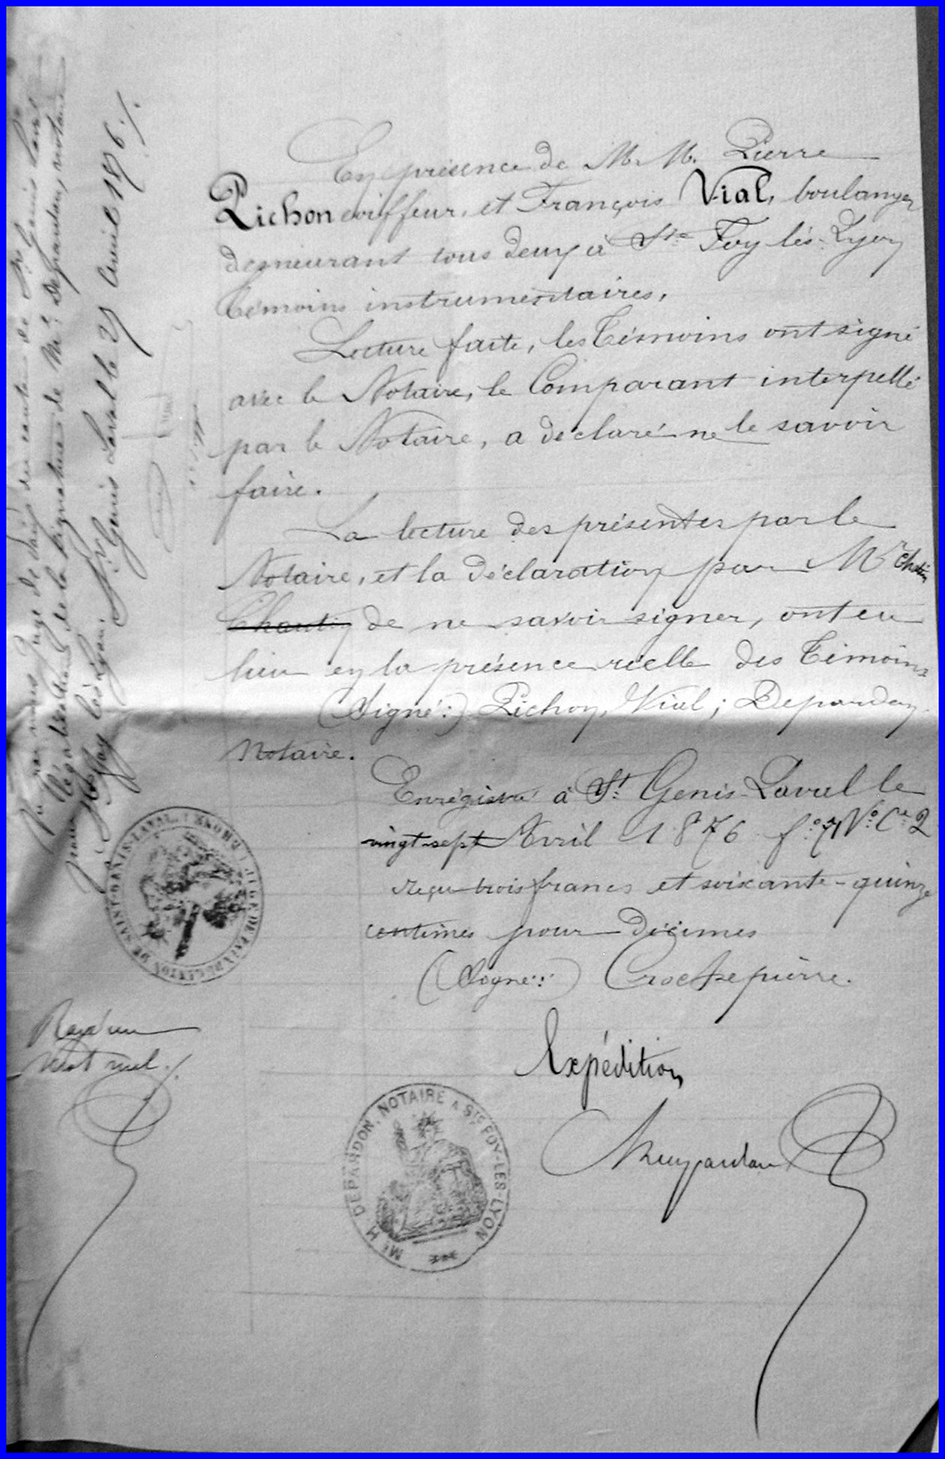 En présence de M. M. Pierre
Pichon coiffeur, et François Vial, boulanger
demeurant tous deux à Ste Foy lès-Lyon
témoins instrumentaires.
Lecture faite, les témoins ont signé
avec le Notaire, le Comparant interpellé
par le Notaire, a déclaré ne le savoir
faire.
La lecture des présentes par le
Notaire, et la déclaration par Mr
de ne savoir signer, ont eu
lieu en la présence réelle des témoins
(Signé:) Pichon, Vial; Depardon,
Notaire.
Enregistré à St Genis-Laval le
vingt-sept Avril 1876 fo 71 Vo Ce 2
reçu trois francs et soixante-quinze
centimes pour décimes
(Signé:) Crochepierre.
Expédition
Mc H. DEPARDON, NOTAIRE A STE FOY-LES-LYON
Rayé un
mot nul ./.
Vu par nous Juge de Paix du canton de St Genis Laval
légalisation de la signature de Me Depardon, notaire
Foy lès Lyon.
St Genis Laval le 29 Avril 1876 ./.
JUGE DE PAIX DU CANTON DE SAINT-GENIS-LAVAL (RHONE)